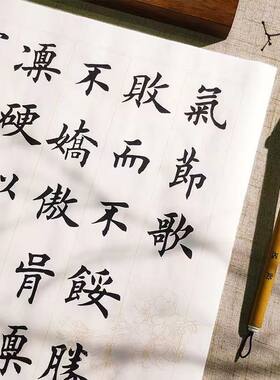 氣節歌
敗而不餒勝
不嬌傲骨凜
凜硬以